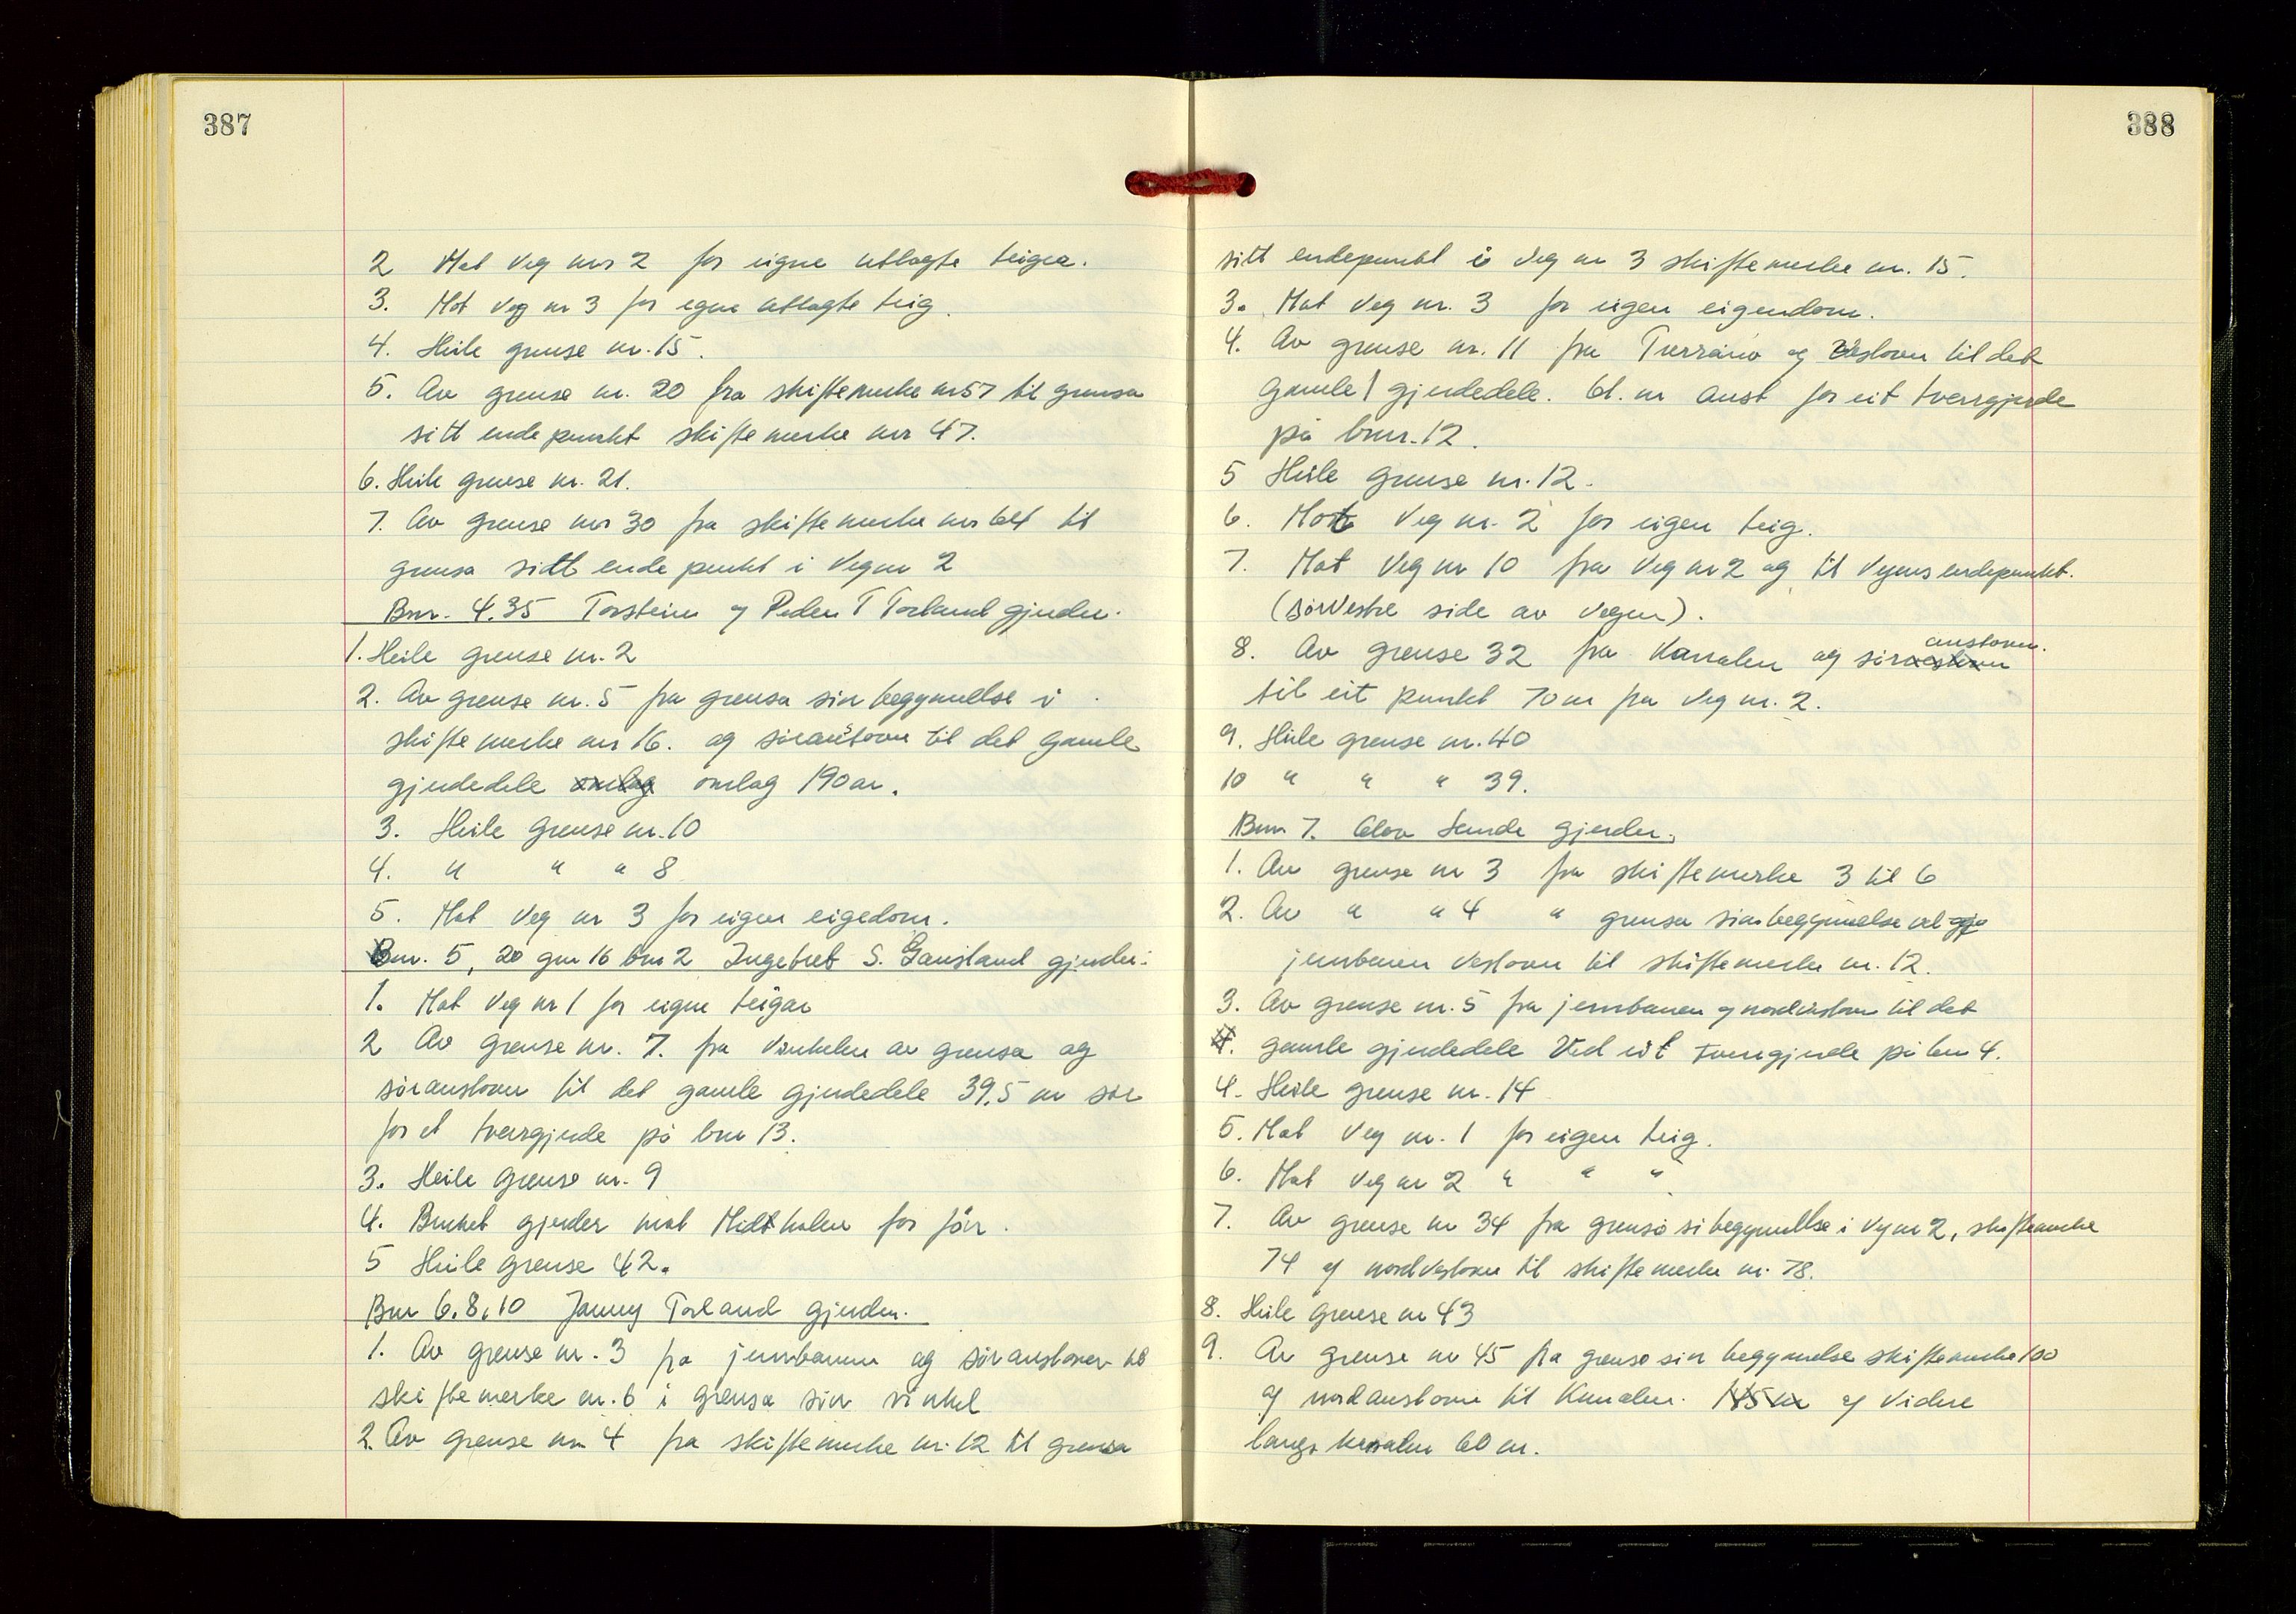 387
2 Mot Veg nr 2 for eigne utlagte teigar.
3. Mot Veg nr 3 for egne utlagte teig.
4. Heile grense nr. 15.
5. Av grense nr. 20 fra skiftemerke nr 57 til grensa
sitt endepunkt skiftemerke nr 47.
6. Heile grense nr. 21.
7. Av grense nr 30 fra skiftemerke nr 64 til
grensa sitt endepunkt i Veg nr 2
Bnr. 4.35 Torstein og Peder T Torland gjerder.
1. Heile grense nr. 2
2. Av grense nr. 5 fra grensa sin begynnelse i
skiftemerke nr 16. og søraustover til det gamle
gjerdedele omlag omlag 190 m.
3. Heile grense nr. 10
4. " " " 8
5. Mot Veg nr 3 for eigen eigedom.
Bnr. 5, 20 gnr 16 bnr 2 Ingebret S. Gausland gjerder:
1. Mot Veg nr 1 for eigne teigar
2 Av grense nr. 7. fra vinkelen av grensa og
søraustover til det gamle gjerdedele 39.5 m sør
for et tverrgjerde på bnr 13.
3. Heile grense nr. 9
4. Bruket gjerder mot Midthalen for før.
5 Heile grense 42.
Bnr 6.8.10 Janny Torland gjerder.
1. Av grense nr. 3 fra jernbanen og søraustover til
skiftemerke nr. 6 i grensa sin vinkel
2. Av grense nr 4 fra skiftemerke nr. 12 til grensa
388
sitt endepunkt i Veg nr 3 skiftemerke nr. 15.
3. Mot Veg nr. 3 for eigen eigendom.
4. Av grense nr. 11 fra og til det
gamle gjerdedele. 61. m aust for eit tverrgjerde
på bnr. 12.
5 Heile grense nr. 12.
6. Mot Veg nr. 2 for eigen teig.
7. Mot Veg nr 10 fra Veg nr 2 og til Vegens endepunkt.
(sørvestre side av vegen).
8. Av grense 32 fra Kanalen og sørvestover
austover.
til eit punkt 70 m fra Veg nr. 2.
9. Heile grense nr. 40
10 " " " 39.
Bnr 7. Olav Sunde gjerder.
1. Av grense nr 3 fra skiftemerke 3 til 6
2. Av " " 4 " grensa sin begynnelse ved
jernbanen vestover til skiftemerke nr. 12.
3. Av grense nr. 5 fra jernbanen og nordvestover til det
4. gamle gjerdedele Ved eit tverrgjerde på bnr 4.
4. Heile grense nr. 14
5. Mot Veg nr. 1 for eigen teig.
6. Mot Veg nr 2 " " "
7. Av grense nr 34 fra grensa si begynnelse i Veg nr 2, skiftemerke
74 og nordvestover til skiftemerke nr. 78.
8. Heile grense nr 43
9. Av grense nr 45 fra grensa sin begynnelse skiftemerke 100
og nordaustover til Kanalen. 145 m og videre
langs kanalen 60 m.